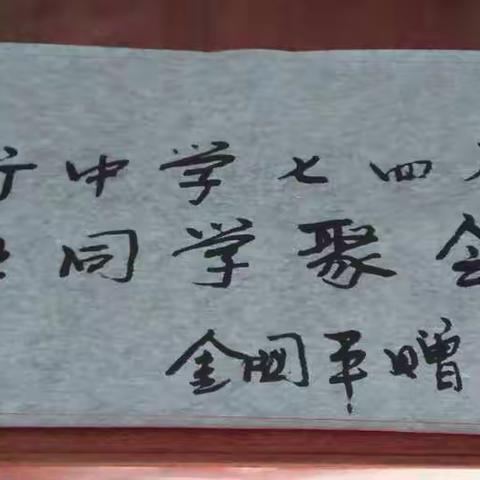 中学七四
同学聚会
金国平赠